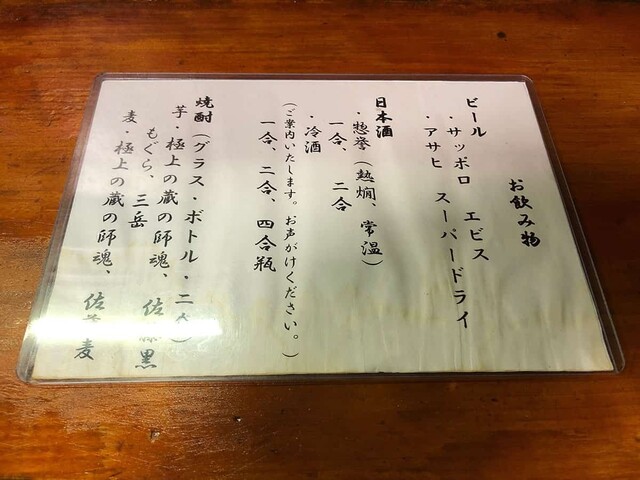 お飲み物
ビール
・サッポロ エビス
・アサヒ スーパードライ
日本酒
・惣挙（熱燗、常温）
一合、二合
・冷酒
（ご案内いたします。お声がけください。）
一合、二合、四合瓶
焼酎（グラス・ボトル・二合）
芋・極上の蔵の師魂、佐藤黒
もぐら、三岳
麦・極上の蔵の師魂、佐藤麦